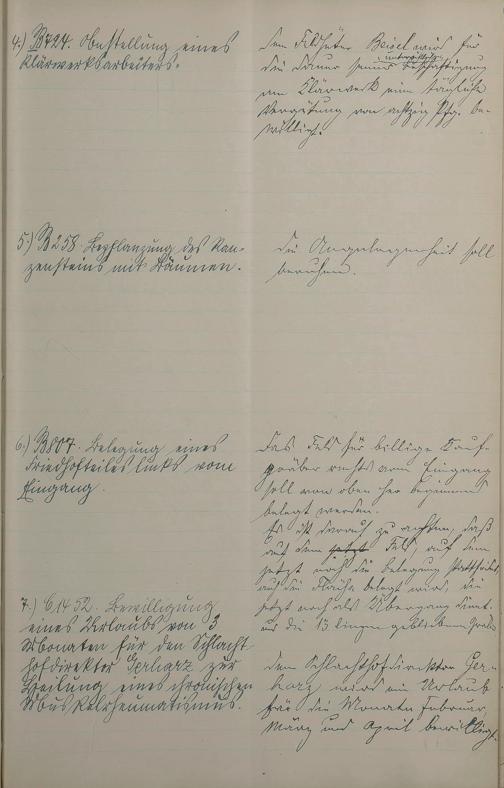 4.) B 424. Bestellung eines
Klärwerksarbeiters.
Dem Feldhüter Beisel wird für
die Dauer seiner Beschäftigung
am Klärwerk eine tägliche
Vergütung von achtzig Pfg. be-
willigt.
5.) B 258. Bepflanzung des Kan-
zensteins mit Bäumen.
Die Angelegenheit soll
beruhen.
6.) B 807. Belegung eines
Friedhofteiles links vom
Eingang.
Das Feld für billige Kauf-
gräber rechts vom Eingang
soll von oben her beginnend
belegt werden.
Es ist darauf zu achten, daß
auf dem Feld, auf dem
jetzt noch die Belegung stattfindet
auch die Fläche belegt wird, die
jetzt noch als Übergang dient
und die 13 liegen gebliebenen Gräber
7.) C 1452. Bewilligung
eines Urlaubs von 3
Monaten für den Schlacht-
hofdirektor Gerharz zur
Heilung eines chronischen
Muskelrheumatismus.
Dem Schlachthofdirektor Ger-
harz wird ein Urlaub
für die Monate Februar,
März und April bewilligt.